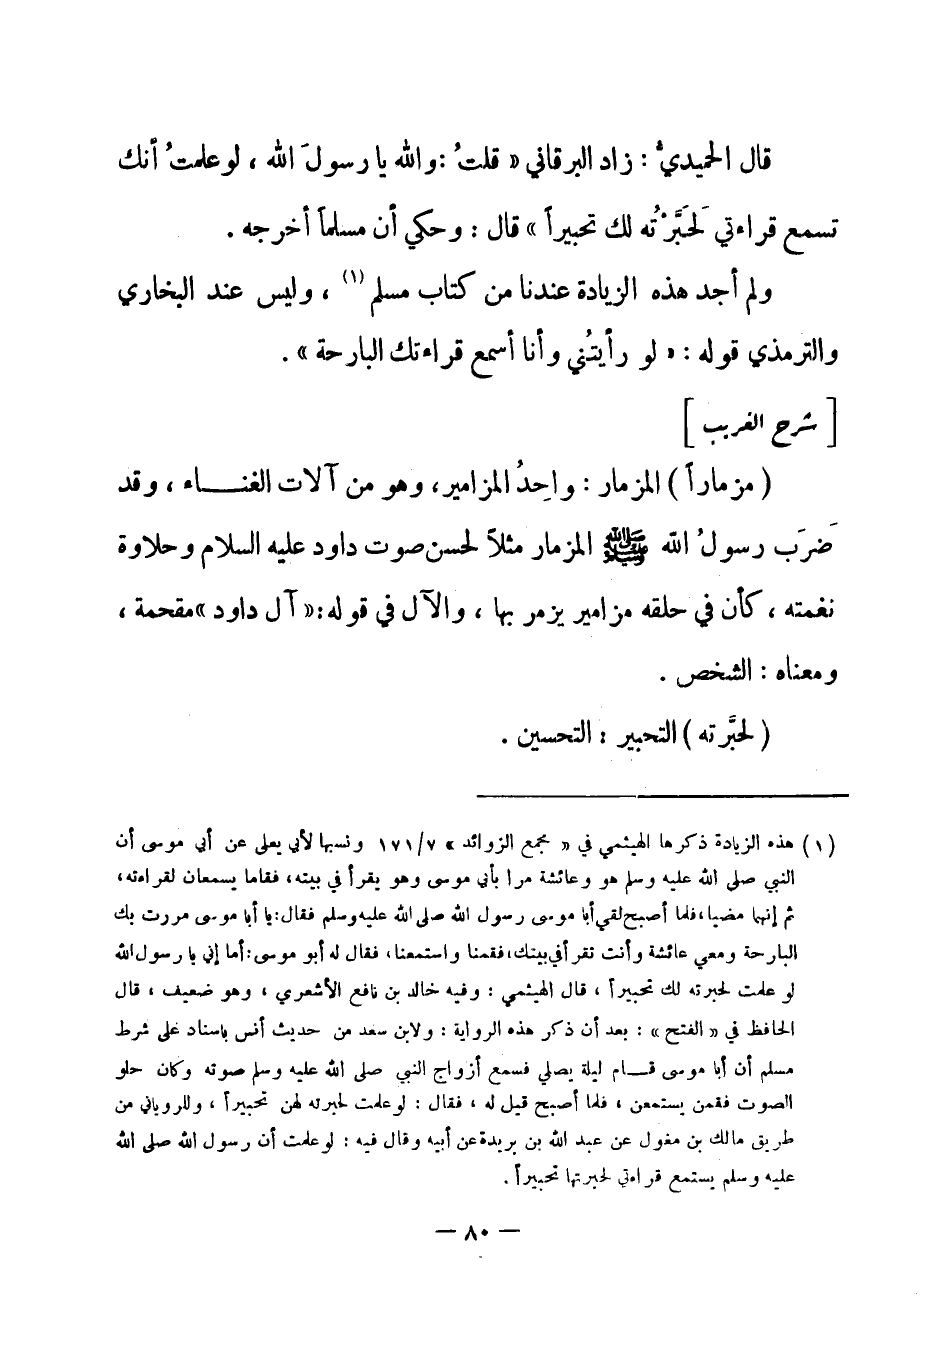 قال الحميديُّ : زاد البرقاني « قلتُ : والله يا رسولَ الله ، لو علمتُ أنك
تسمع قراءتي لَحَبَّرْتُه لك تحبيراً » قال : وحكي أن مسلماً أخرجه .
ولم أجد هذه الزيادة عندنا من كتاب مسلم (١) ، وليس عند البخاري
والترمذي قوله : « لو رأيتُني وأنا أسمع قراءتك البارحة » .
[ شرح الغريب ]
( مزماراً ) المزمار : واحِدُ المزامير، وهو من آلات الغنـــاء ، وقد
ضَرَب رسولُ الله ﷺ المزمار مثلاً لحسن صوت داود عليه السلام وحلاوة
نغمته ، كأن في حلقه مزامير يزمر بها ، والآل في قوله : « آل داود » مقحمة ،
ومعناه : الشخص .
( لحبَّرته ) التحبير : التحسين .
(١) هذه الزيادة ذكرها الهيثمي في « مجمع الزوائد » ١٧١/٧ ونسبها لأبي يعلى عن أبي موسى أن
النبي صلى الله عليه وسلم هو وعائشة مرا بأبي موسى وهو يقرأ في بيته، فقاما يسمعان لقراءته،
ثم إنهما مضيا، فلما أصبح لقي أبا موسى رسول الله صلى الله عليه وسلم فقال: يا أبا موسى مررت بك
البارحة ومعي عائشة وأنت تقرأ في بيتك، فقمنا واستمعنا، فقال له أبو موسى: أما إني يا رسول الله
لو علمت لحبرته لك تحبيراً ، قال الهيثمي : وفيه خالد بن نافع الأشعري ، وهو ضعيف ، قال
الحافظ في « الفتح » : بعد أن ذكر هذه الرواية : ولابن سعد من حديث أنس باسناد على شرط
مسلم أن أبا موسى قـــام ليلة يصلي فسمع أزواج النبي صلى الله عليه وسلم صوته وكان حلو
الصوت فقمن يستمعن ، فلما أصبح قيل له ، فقال : لو علمت لحبرته لهن تحبيراً ، وللروياني من
طريق مالك بن مغول عن عبد الله بن بريدة عن أبيه وقال فيه : لو علمت أن رسول الله صلى الله
عليه وسلم يستمع قراءتي لحبرتها تحبيراً .
— ٨٠ —